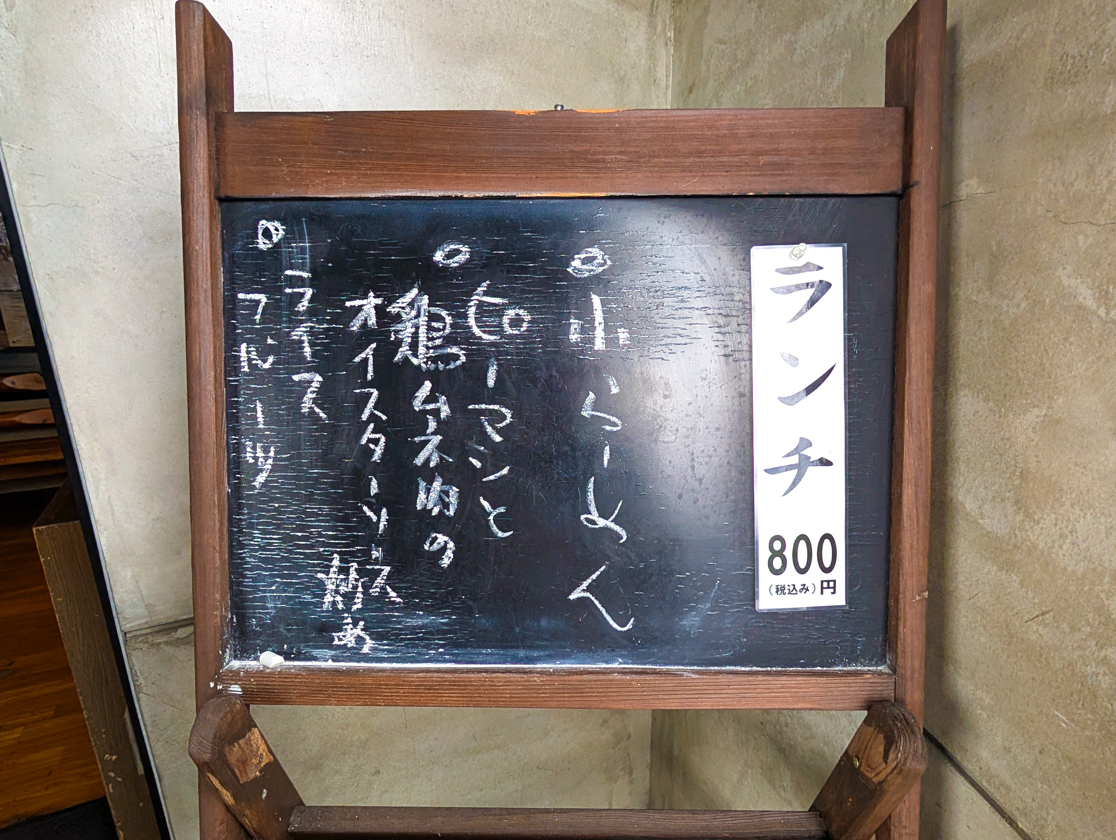 ランチ
800
(税込み)円
○小らーめん
○ピーマンと
鶏ムネ肉の
オイスターソース
炒め
○ライス
フルーツ